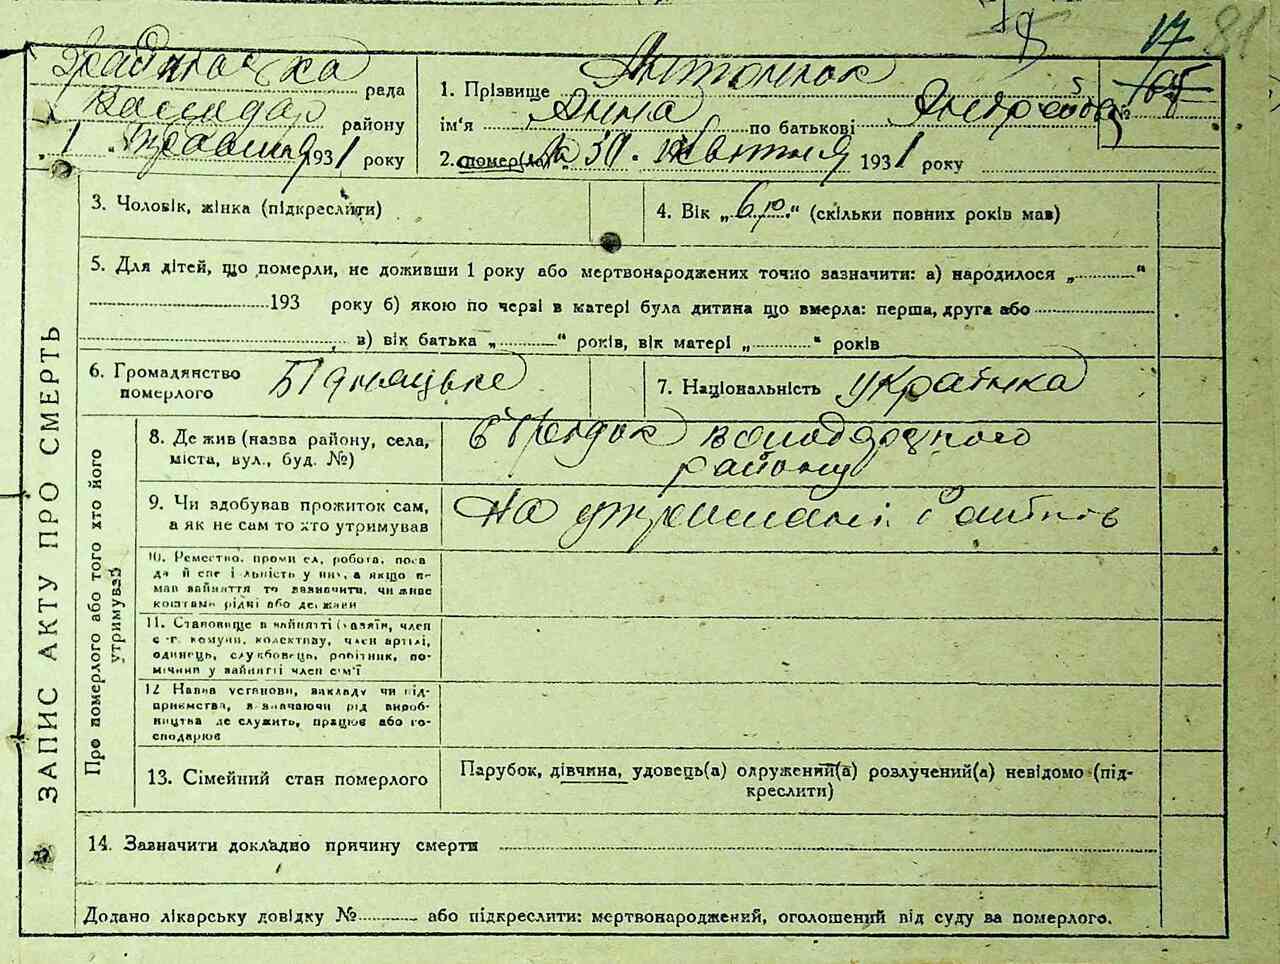 17 81
рада 1. Прізвище Антонюк
району ім'я Анна по батькові Андреевна № 165
„1“ травня 1931 року 2. помер(ла) 30. квітня 1931 року
3. Чоловік, жінка (підкреслити) 4. Вік „6 р.“ (скільки повних років мав)
5. Для дітей, що померли, не доживши 1 року або мертвонароджених точно зазначити: а) народилося „..........“
193 року б) якою по черзі в матері була дитина що вмерла: перша, друга або
в) вік батька „..........“ років, вік матері „..........“ років
6. Громадянство померлого Бідняцьке 7. Національність українка
ЗАПИС АКТУ ПРО СМЕРТЬ
Про померлого або того хто його утримував
8. Де жив (назва району, села,
міста, вул., буд. №)
району
9. Чи здобував прожиток сам,
а як не сам то хто утримував
На утриманні батьків
10. Ремество, промисел, робота, поса
да й спеціільність у них, а якщо не
мав зайняття то зазначити, чи живе
коштами рідні або держави
11. Становище в зайнятті (хазяїн, член
с.-г. комуни, колективу, член артілі,
одинець, службовець, робітник, по-
мічний у зайнятті член сім'ї
12 Назва установи, закладу чи під-
приємства, зазначаючи рід вироб-
ництва де служить, працює або го-
сподарює
13. Сімейний стан померлого
Парубок, дівчина, удовець(а) одружений(а) розлучений(а) невідомо (під-
креслити)
14. Зазначити докладно причину смерти
Додано лікарську довідку №.......... або підкреслити: мертвонароджений, оголошений від суду за померлого.